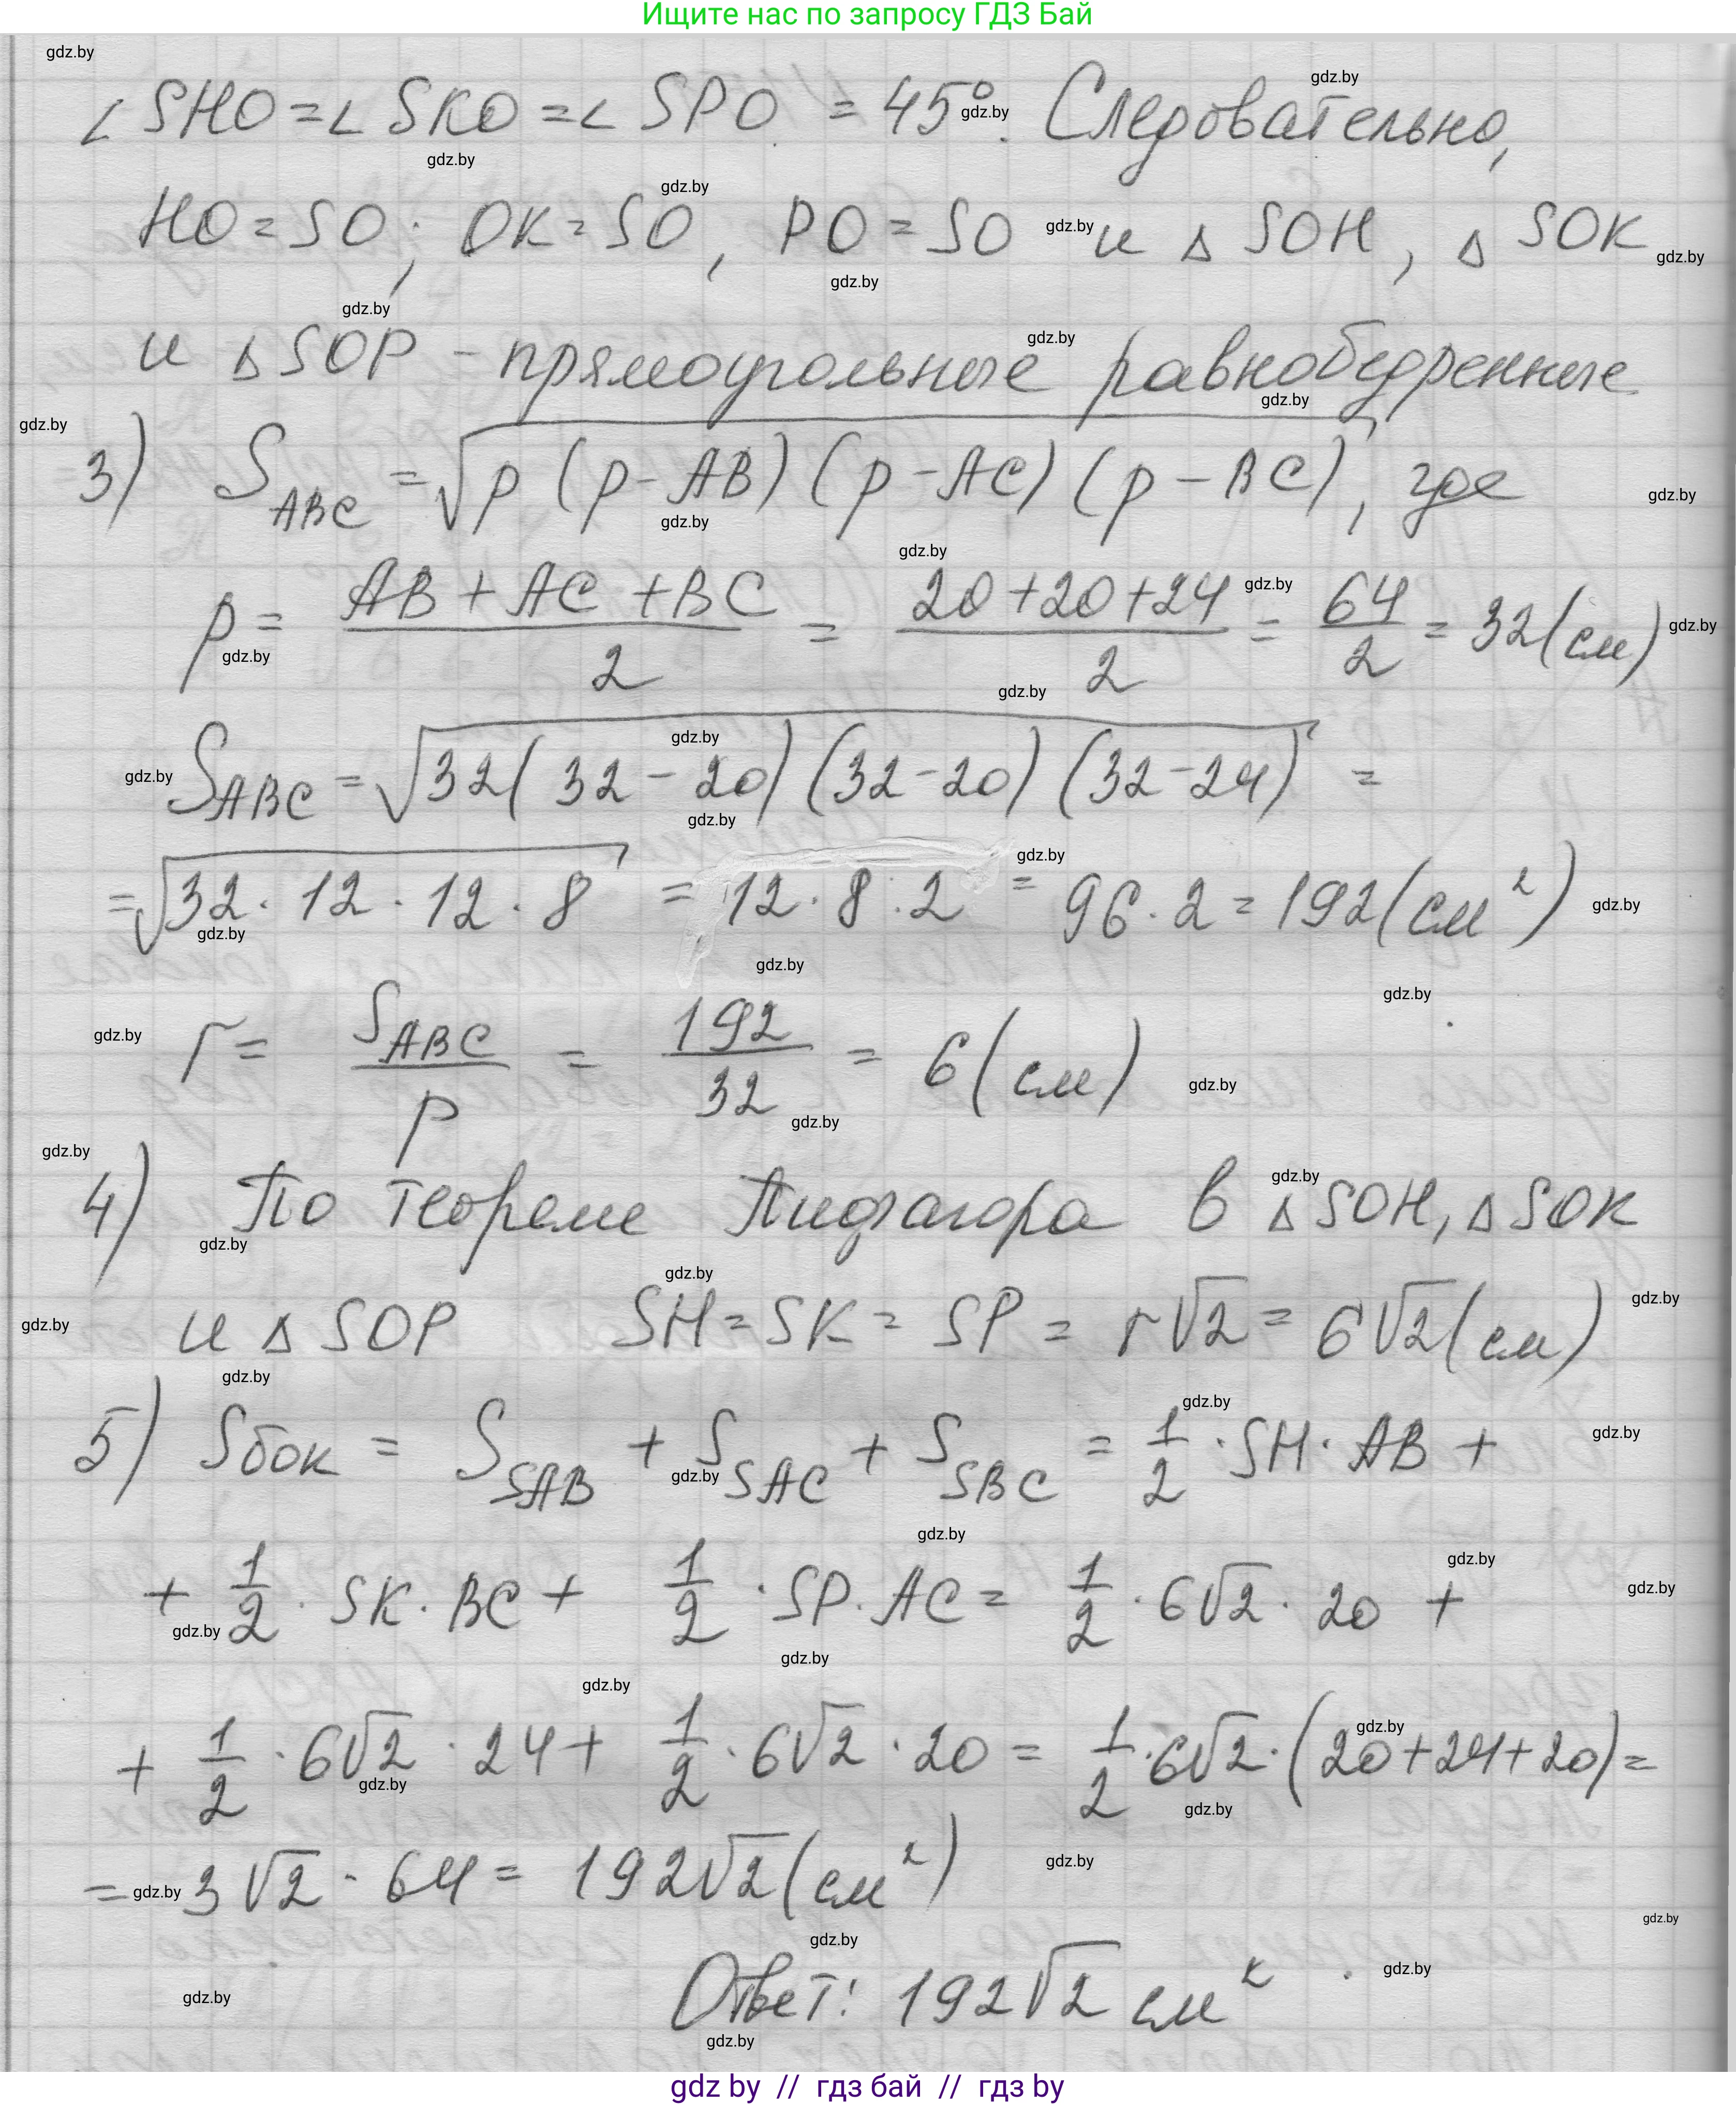 Ищите нас по запросу ГДЗ Бай
∠ SHO = ∠ SKO = ∠ SPO = 45°. Следовательно,
HO = SO; OK = SO, PO = SO и △ SOH, △ SOK
и △ SOP – прямоугольные равнобедренные
3) S_ABC = √(p (p - AB) (p - AC) (p - BC)), где
p = (AB + AC + BC)/2 = (20 + 20 + 24)/2 = 64/2 = 32 (см)
S_ABC = √(32 (32 - 20) (32 - 20) (32 - 24)) =
= √(32 · 12 · 12 · 8) = 12 · 8 · 2 = 96 · 2 = 192 (см²)
r = S_ABC/p = 192/32 = 6 (см)
4) По теореме Пифагора в △ SOH, △ SOK
и △ SOP SH = SK = SP = r√2 = 6√2 (см)
5) Sбок = S_SAB + S_SAC + S_SBC = 1/2 · SH · AB +
+ 1/2 · SK · BC + 1/2 · SP · AC = 1/2 · 6√2 · 20 +
+ 1/2 · 6√2 · 24 + 1/2 · 6√2 · 20 = 1/2 · 6√2 · (20 + 24 + 20) =
= 3√2 · 64 = 192√2 (см²)
Ответ: 192√2 см²
gdz by // гдз бай // гдз by